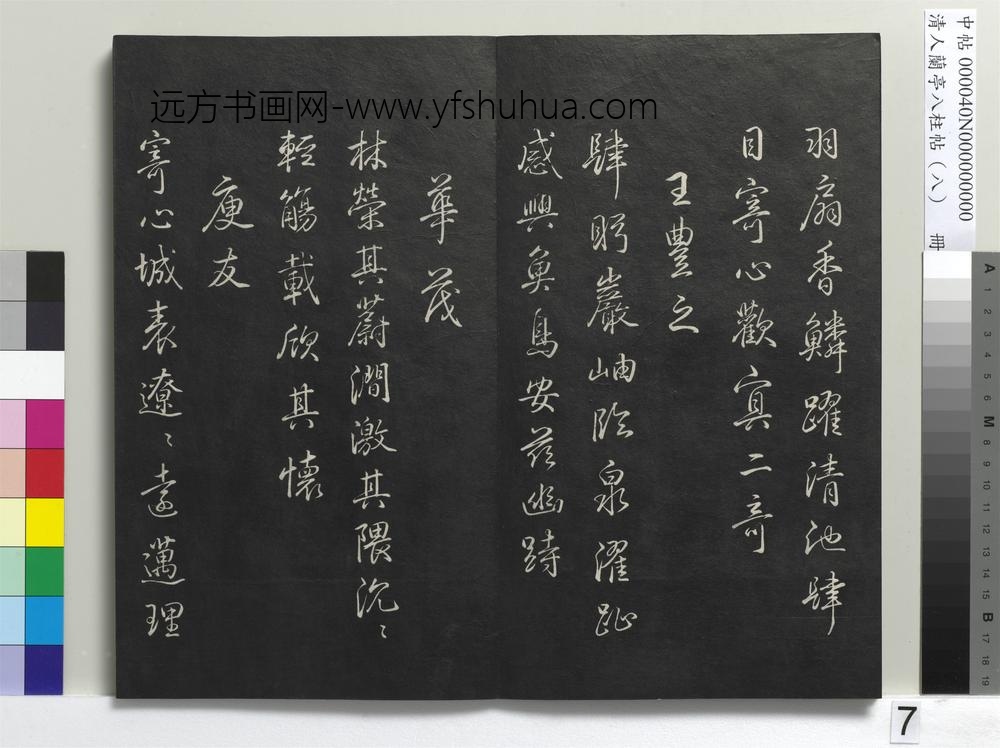 远方书画网-www.yfshuhua.com
羽扇香鱗躍清池肆
目寄心歡冥二奇
王豐之
肆眄巖岫臨泉濯趾
感興魚鳥安茲幽跱
華茂
林榮其蔚澗激其隈汎〻
輕觴載欣其懷
庾友
寄心城表遼〻遠邁理
中帖 000040N000000000
清人蘭亭八柱帖（八） 冊
A 1 2 3 4 5 6 M 8 9 10 11 12 13 14 15 B 17 18 19
7